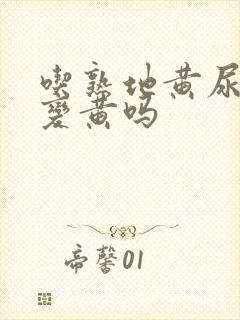 喫熟地黄尿
變黄吗
帝馨01